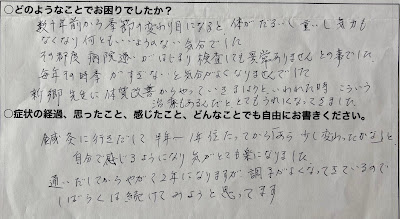 ○どのようなことでお困りでしたか?
数十年前から季節の変わり目になると体がだるい、重い、気力も
なくなり何ともいいようのない気分でした
その都度 病院通いがはじまり検査しても異常ありませんとの事でした
毎年その時季がすぎないと気分がよくなりませんでした
新郷先生に体質改善からやっていきましょうといわれた時 こういう
治療もあるんだととてもうれしくなってきました
○症状の経過、思ったこと、感じたこと、どんなことでも自由にお書きください。
鍼灸に行きだして半年~1年位たってから「あら少し変わったかな」と
自分で感じるようになり気がとても楽になりました
通いだしてからやがて2年になりますが調子がよくなってきているので
しばらくは続けてみようと思ってます